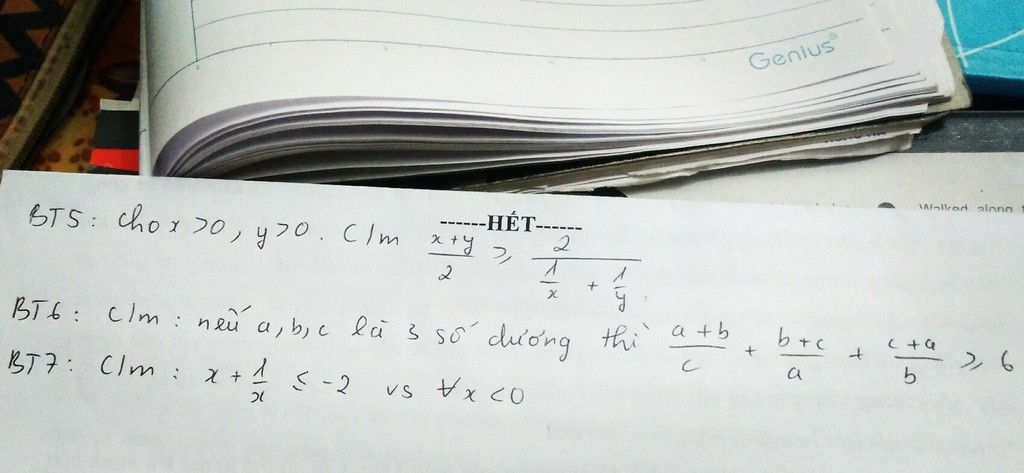 Genius®
Walked along
------HẾT------
BT5: Cho x > 0, y > 0. C/m \frac{x+y}{2} ≥ \frac{2}{\frac{1}{x} + \frac{1}{y}}
BT6: C/m: nếu a, b, c là 3 số dương thì \frac{a+b}{c} + \frac{b+c}{a} + \frac{c+a}{b} ≥ 6
BT7: C/m: x + \frac{1}{x} ≤ -2 vs ∀x < 0